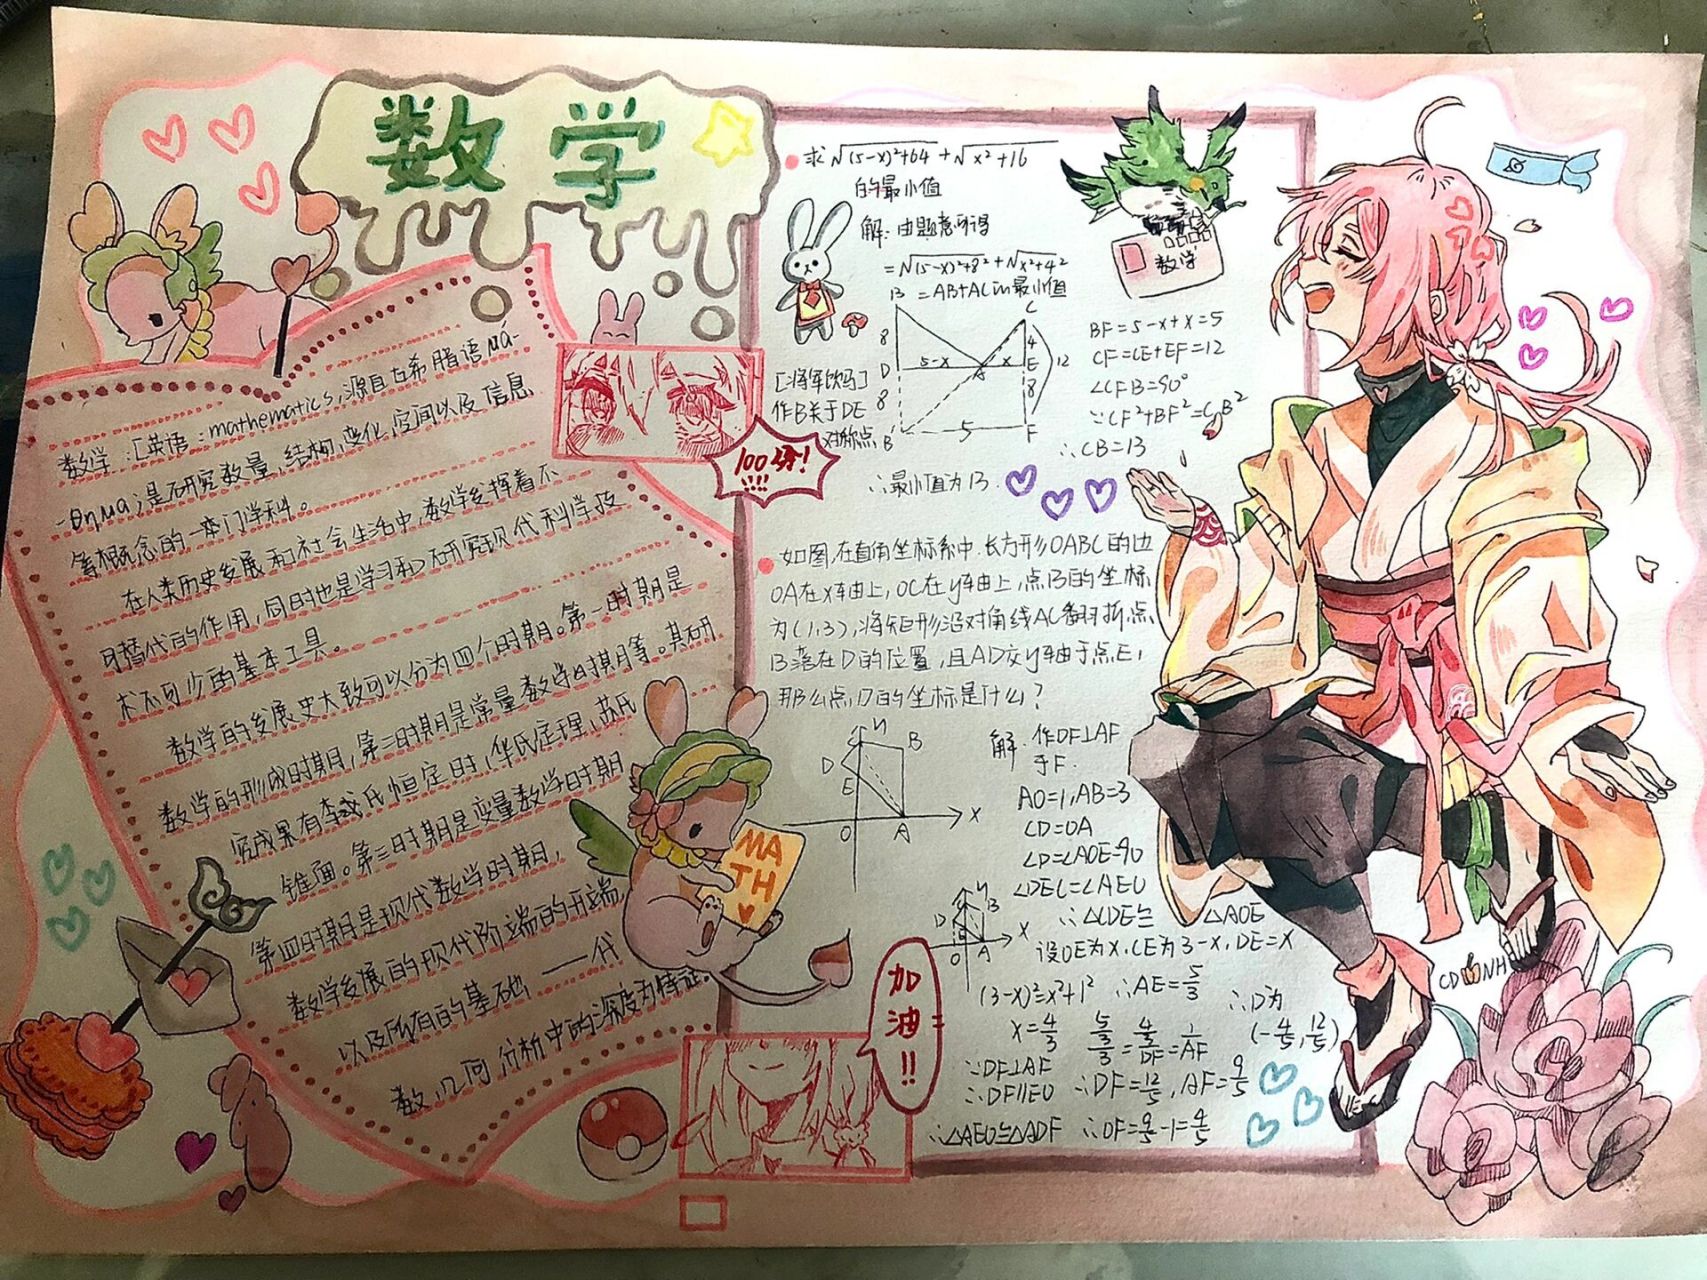 数学
数学:[英语:mathematics,源自古希腊语μά-
-θημα;是研究数量,结构,变化,空间以及信息
等概念的一本门学科。
在人类历史发展和社会生活中,数学发挥着不
可替代的作用,同时也是学习和研究现代科学技
术不可少的基本工具。
数学的发展史大致可以分为四个时期。第一时期是
数学的形成时期,第二时期是常量数学时期等。其研
究成果有李氏恒定时,华氏定理,苏氏
锥面。第三时期是变量数学时期
第四时期是现代数学时期,
数学发展的现代阶端的开端,
以及所有的基础——代
数,几何,分析中的深度为特征。
100分!
!!!!
MA
TH
加
油
!!
求√(5-x)²+64 + √x²+16
的最小值
解:由题意可得
=√(5-x)²+8² + √x²+4²
=AB+AC的最小值
B
C
8
4
D
5-x
A
x
E
12
[将军饮马]
作B关于DE
对称点
8
8
B
5
F
∴最小值为13.
数学
BF=5-x+x=5
CF=CE+EF=12
∠CFB=90°
∵CF²+BF²=CB²
∴CB=13
如图,在直角坐标系中,长方形OABC的边
OA在x轴上,OC在y轴上,点B的坐标
为(1,3),将矩形沿对角线AC翻折点
B落在D的位置,且AD交y轴于点E,
那么点D的坐标是什么?
y
C
B
D
E
O
A
x
解:作DF⊥AF
于F.
AO=1,AB=3
CD=OA
∠D=∠AOE=90
∠DEC=∠AEO
∴△CDE≌△AOE
设OE为x,CE为3-x,DE=x
y
B
D
x
O
A
(3-x)²=x²+1² ∴AE=5/3
x=4/3 (5/3)/3=(4/3)/DF=1/AF
∴D为
(-4/5,12/5)
∵DF⊥AF
∴DF//EO ∴DF=12/5,AF=9/5
∴△AEO≌△ADF ∴OF=9/5-1=4/5
CD NH